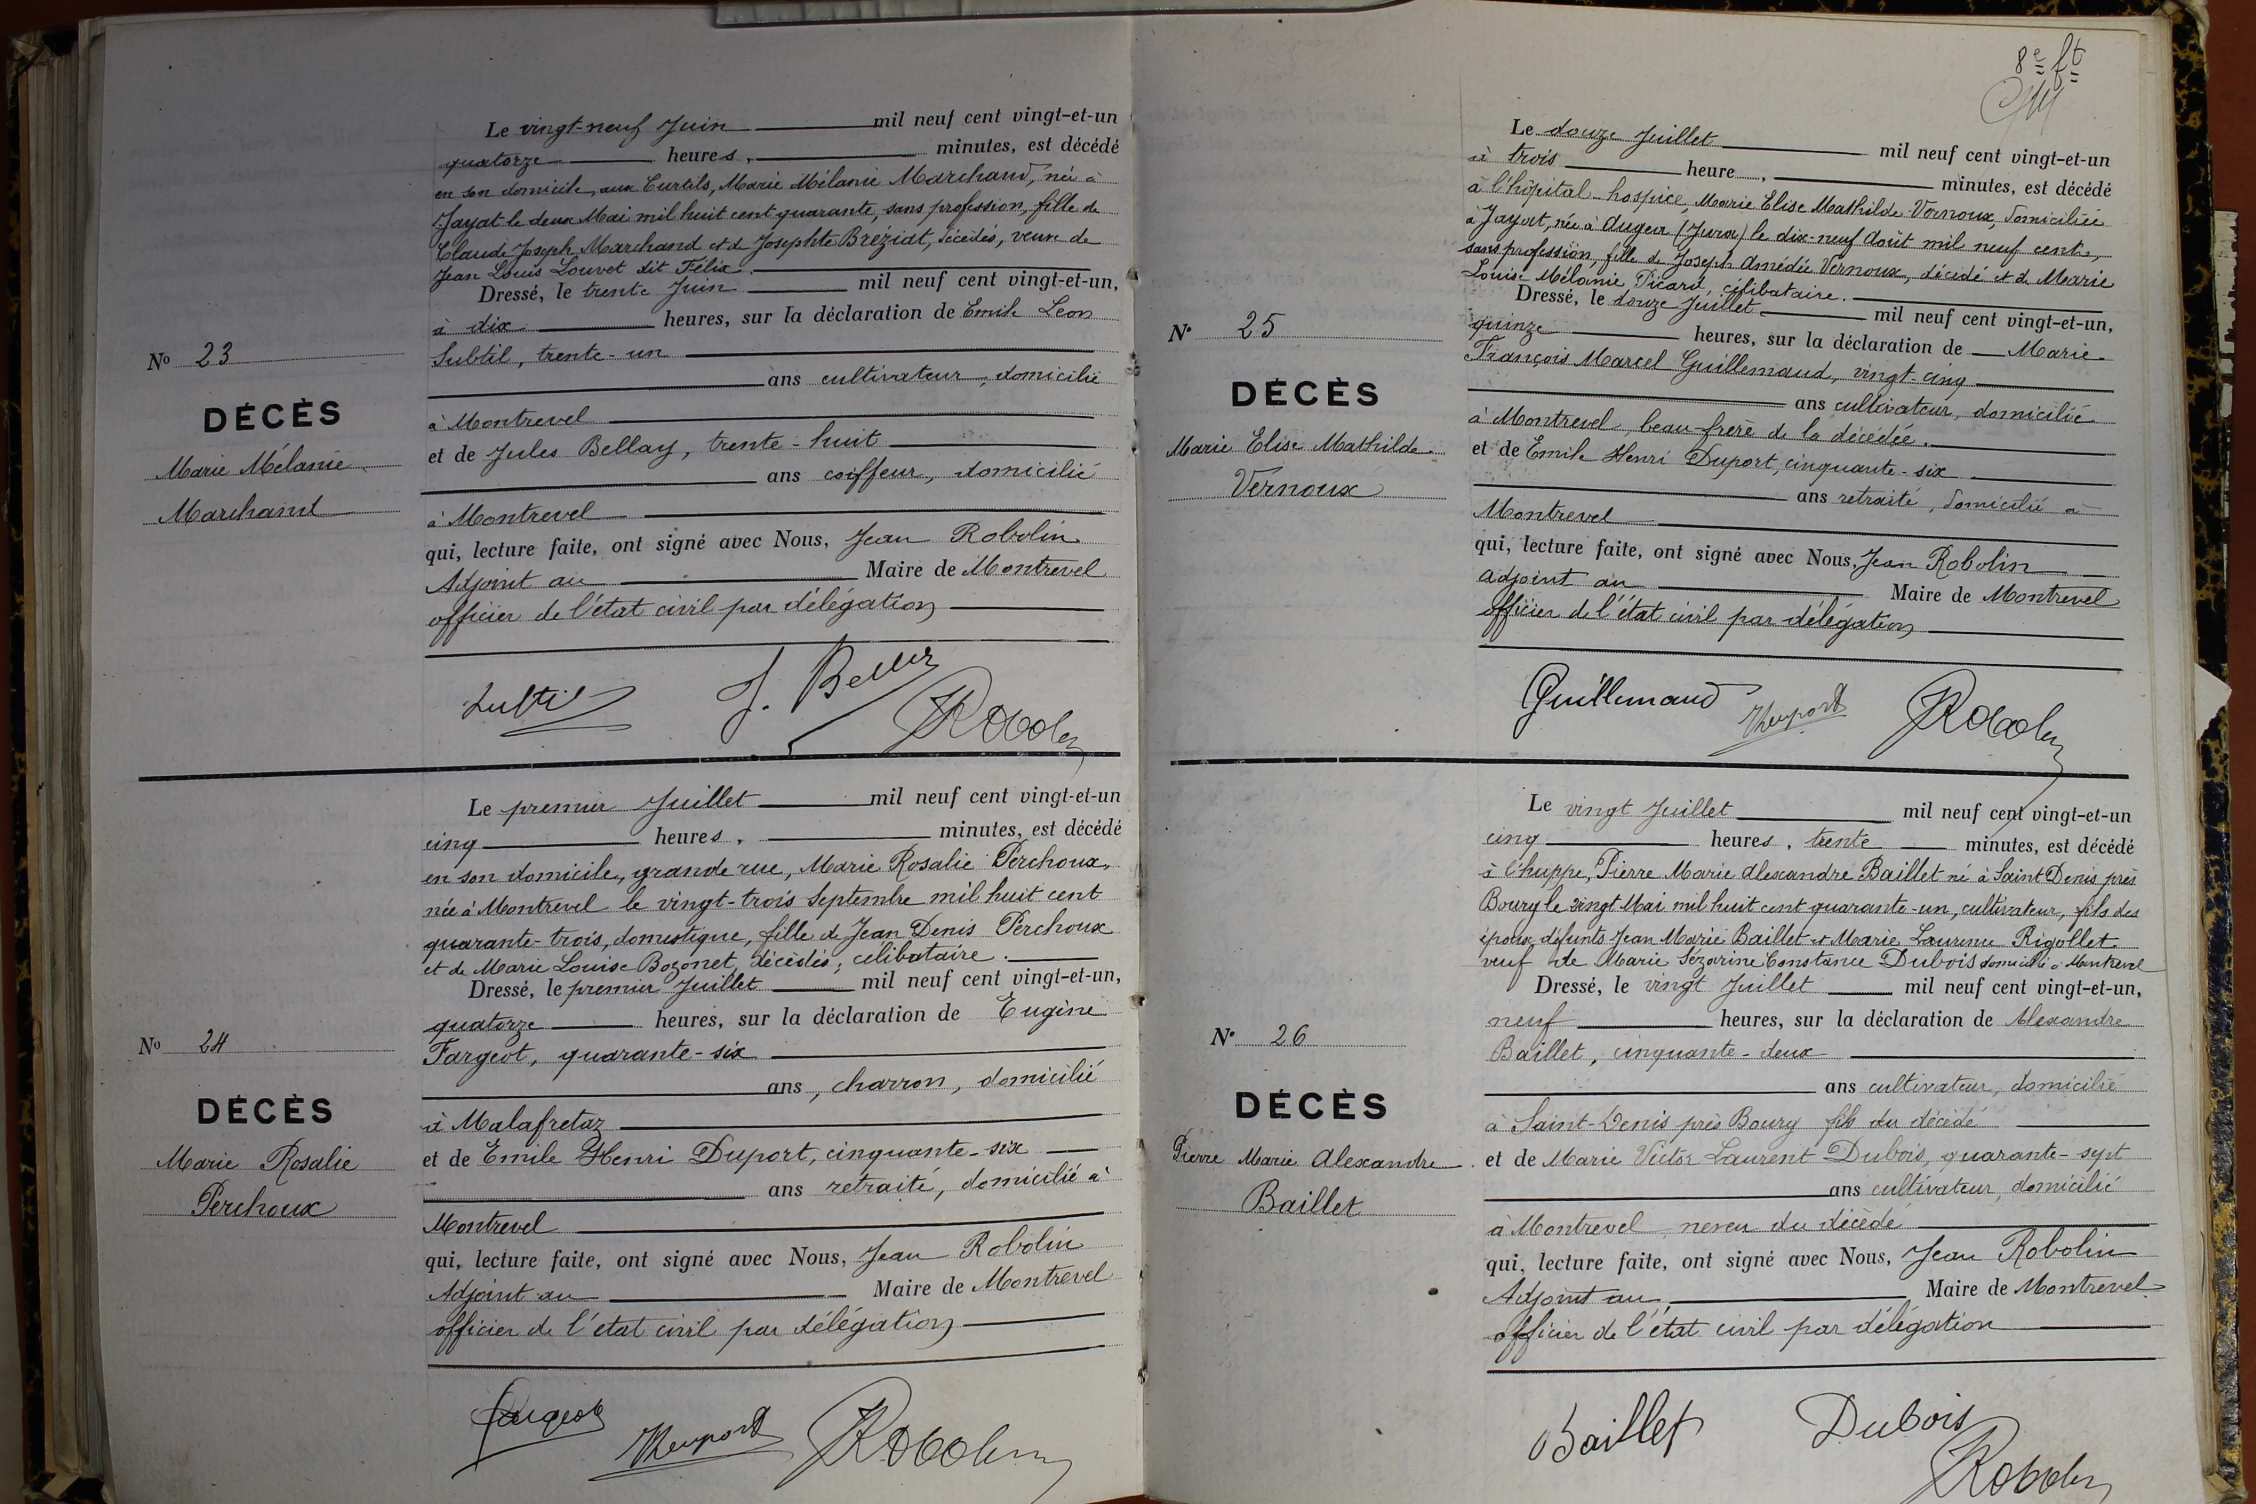 Le vingt-neuf Juin mil neuf cent vingt-et-un
quatorze heures, minutes, est décédé
en son domicile, aux Curtils, Marie Mélanie Marchand, née à
Jayat le deux Mai mil huit cent quarante, sans profession, fille de
Claude Joseph Marchand et d Josephte Bréziat, décédés, veuve de
Jean Louis Louvet dit Félix.
Dressé, le trente Juin mil neuf cent vingt-et-un,
à dix heures, sur la déclaration de Emile Leon
Subtil, trente-un
ans cultivateur, domicilié
à Montrevel
et de Jules Bellay, trente-huit
ans coiffeur, domicilié
à Montrevel
qui, lecture faite, ont signé avec Nous, Jean Robolin
Adjoint au Maire de Montrevel
officier de l'état civil par délégation
No 23
DÉCÈS
Marie Mélanie
Marchand
Subtil J. Bellay JRobolin
Le premier Juillet mil neuf cent vingt-et-un
cinq heures, minutes, est décédé
en son domicile, grande rue, Marie Rosalie Perchoux,
née à Montrevel le vingt-trois Septembre mil huit cent
quarante-trois, domestique, fille de Jean Denis Perchoux
et de Marie Louise Bozonet, décédés, célibataire.
Dressé, le premier Juillet mil neuf cent vingt-et-un,
quatorze heures, sur la déclaration de Eugène
Fargeot, quarante-six
ans, charron, domicilié
à Malafretaz
et de Emile Henri Duport, cinquante-six
ans retraité, domicilié à
Montrevel
qui, lecture faite, ont signé avec Nous, Jean Robolin
Adjoint au Maire de Montrevel
officier de l'état civil par délégation
No 24
DÉCÈS
Marie Rosalie
Perchoux
Fargeot HDuport JRobolin
8e ft
Le douze Juillet mil neuf cent vingt-et-un
à trois heure, minutes, est décédé
à l'hôpital-hospice, Marie Elise Mathilde Vernoux, domiciliée
à Jayat, née à Augea (Jura) le dix-neuf Août mil neuf cent,
sans profession, fille de Joseph Amédée Vernoux, décédé et de Marie
Louise Mélanie Picard, célibataire.
Dressé, le douze Juillet mil neuf cent vingt-et-un,
quinze heures, sur la déclaration de Marie
François Marcel Guillemaud, vingt-cinq
ans cultivateur, domicilié
à Montrevel, beau-frère de la décédée.
et de Emile Henri Duport, cinquante-six
ans retraité, domicilié à
Montrevel
qui, lecture faite, ont signé avec Nous, Jean Robolin
adjoint au Maire de Montrevel
officier de l'état civil par délégation
No 25
DÉCÈS
Marie Elise Mathilde
Vernoux
Guillemaud HDuport JRobolin
Le vingt Juillet mil neuf cent vingt-et-un
cinq heures, trente minutes, est décédé
à l'huppe, Pierre Marie Alexandre Baillet né à Saint Denis près
Bourg le vingt Mai mil huit cent quarante-un, cultivateur, fils des
époux défunts Jean Marie Baillet et Marie Laurence Rigollet
veuf de Marie Sézarine Constance Dubois domicilié à Montrevel
Dressé, le vingt Juillet mil neuf cent vingt-et-un,
neuf heures, sur la déclaration de Alexandre
Baillet, cinquante-deux
ans cultivateur, domicilié
à Saint-Denis près Bourg fils du décédé
et de Marie Victor Laurent Dubois, quarante-sept
ans cultivateur, domicilié
à Montrevel neveu du décédé
qui, lecture faite, ont signé avec Nous, Jean Robolin
Adjoint au Maire de Montrevel
officier de l'état civil par délégation
No 26
DÉCÈS
Pierre Marie Alexandre
Baillet
Baillet Dubois JRobolin